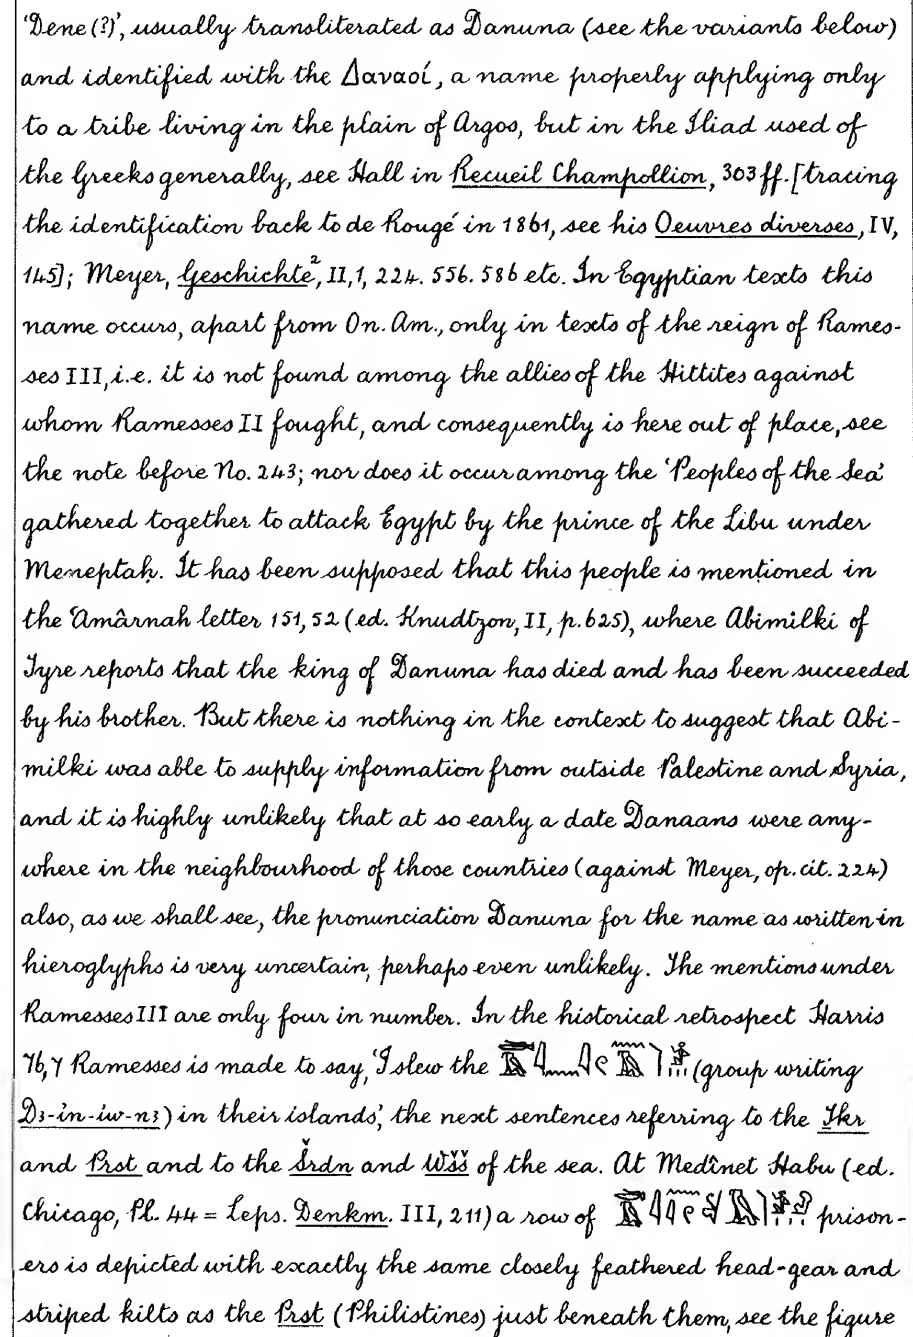 ‘Dene (?)’, usually transliterated as Danuna (see the variants below)
and identified with the Δαναοί, a name properly applying only
to a tribe living in the plain of Argos, but in the Iliad used of
the Greeks generally, see Hall in Recueil Champollion, 303 ff. [tracing
the identification back to de Rougé in 1861, see his Oeuvres diverses, IV,
145]; Meyer, Geschichte², II, 1, 224. 556. 586 etc. In Egyptian texts this
name occurs, apart from On. Am., only in texts of the reign of Rames-
ses III, i.e. it is not found among the allies of the Hittites against
whom Ramesses II fought, and consequently is here out of place, see
the note before No. 243; nor does it occur among the ‘Peoples of the Sea’
gathered together to attack Egypt by the prince of the Libu under
Meneptaḥ. It has been supposed that this people is mentioned in
the ‘Amârnah letter 151, 52 (ed. Knudtzon, II, p. 625), where Abimilki of
Tyre reports that the king of Danuna has died and has been succeeded
by his brother. But there is nothing in the context to suggest that Abi-
milki was able to supply information from outside Palestine and Syria,
and it is highly unlikely that at so early a date Danaans were any-
where in the neighbourhood of those countries (against Meyer, op. cit. 224)
also, as we shall see, the pronunciation Danuna for the name as written in
hieroglyphs is very uncertain, perhaps even unlikely. The mentions under
Ramesses III are only four in number. In the historical retrospect Harris
76, 7 Ramesses is made to say, ‘I slew the (group writing
Dꜣ-in-iw-nꜣ) in their islands’, the next sentences referring to the Ṯkr
and Prst and to the Šrdn and Wšš of the sea. At Medînet Habu (ed.
Chicago, Pl. 44 = Leps. Denkm. III, 211) a row of prison-
ers is depicted with exactly the same closely feathered head-gear and
striped kilts as the Prst (Philistines) just beneath them, see the figure